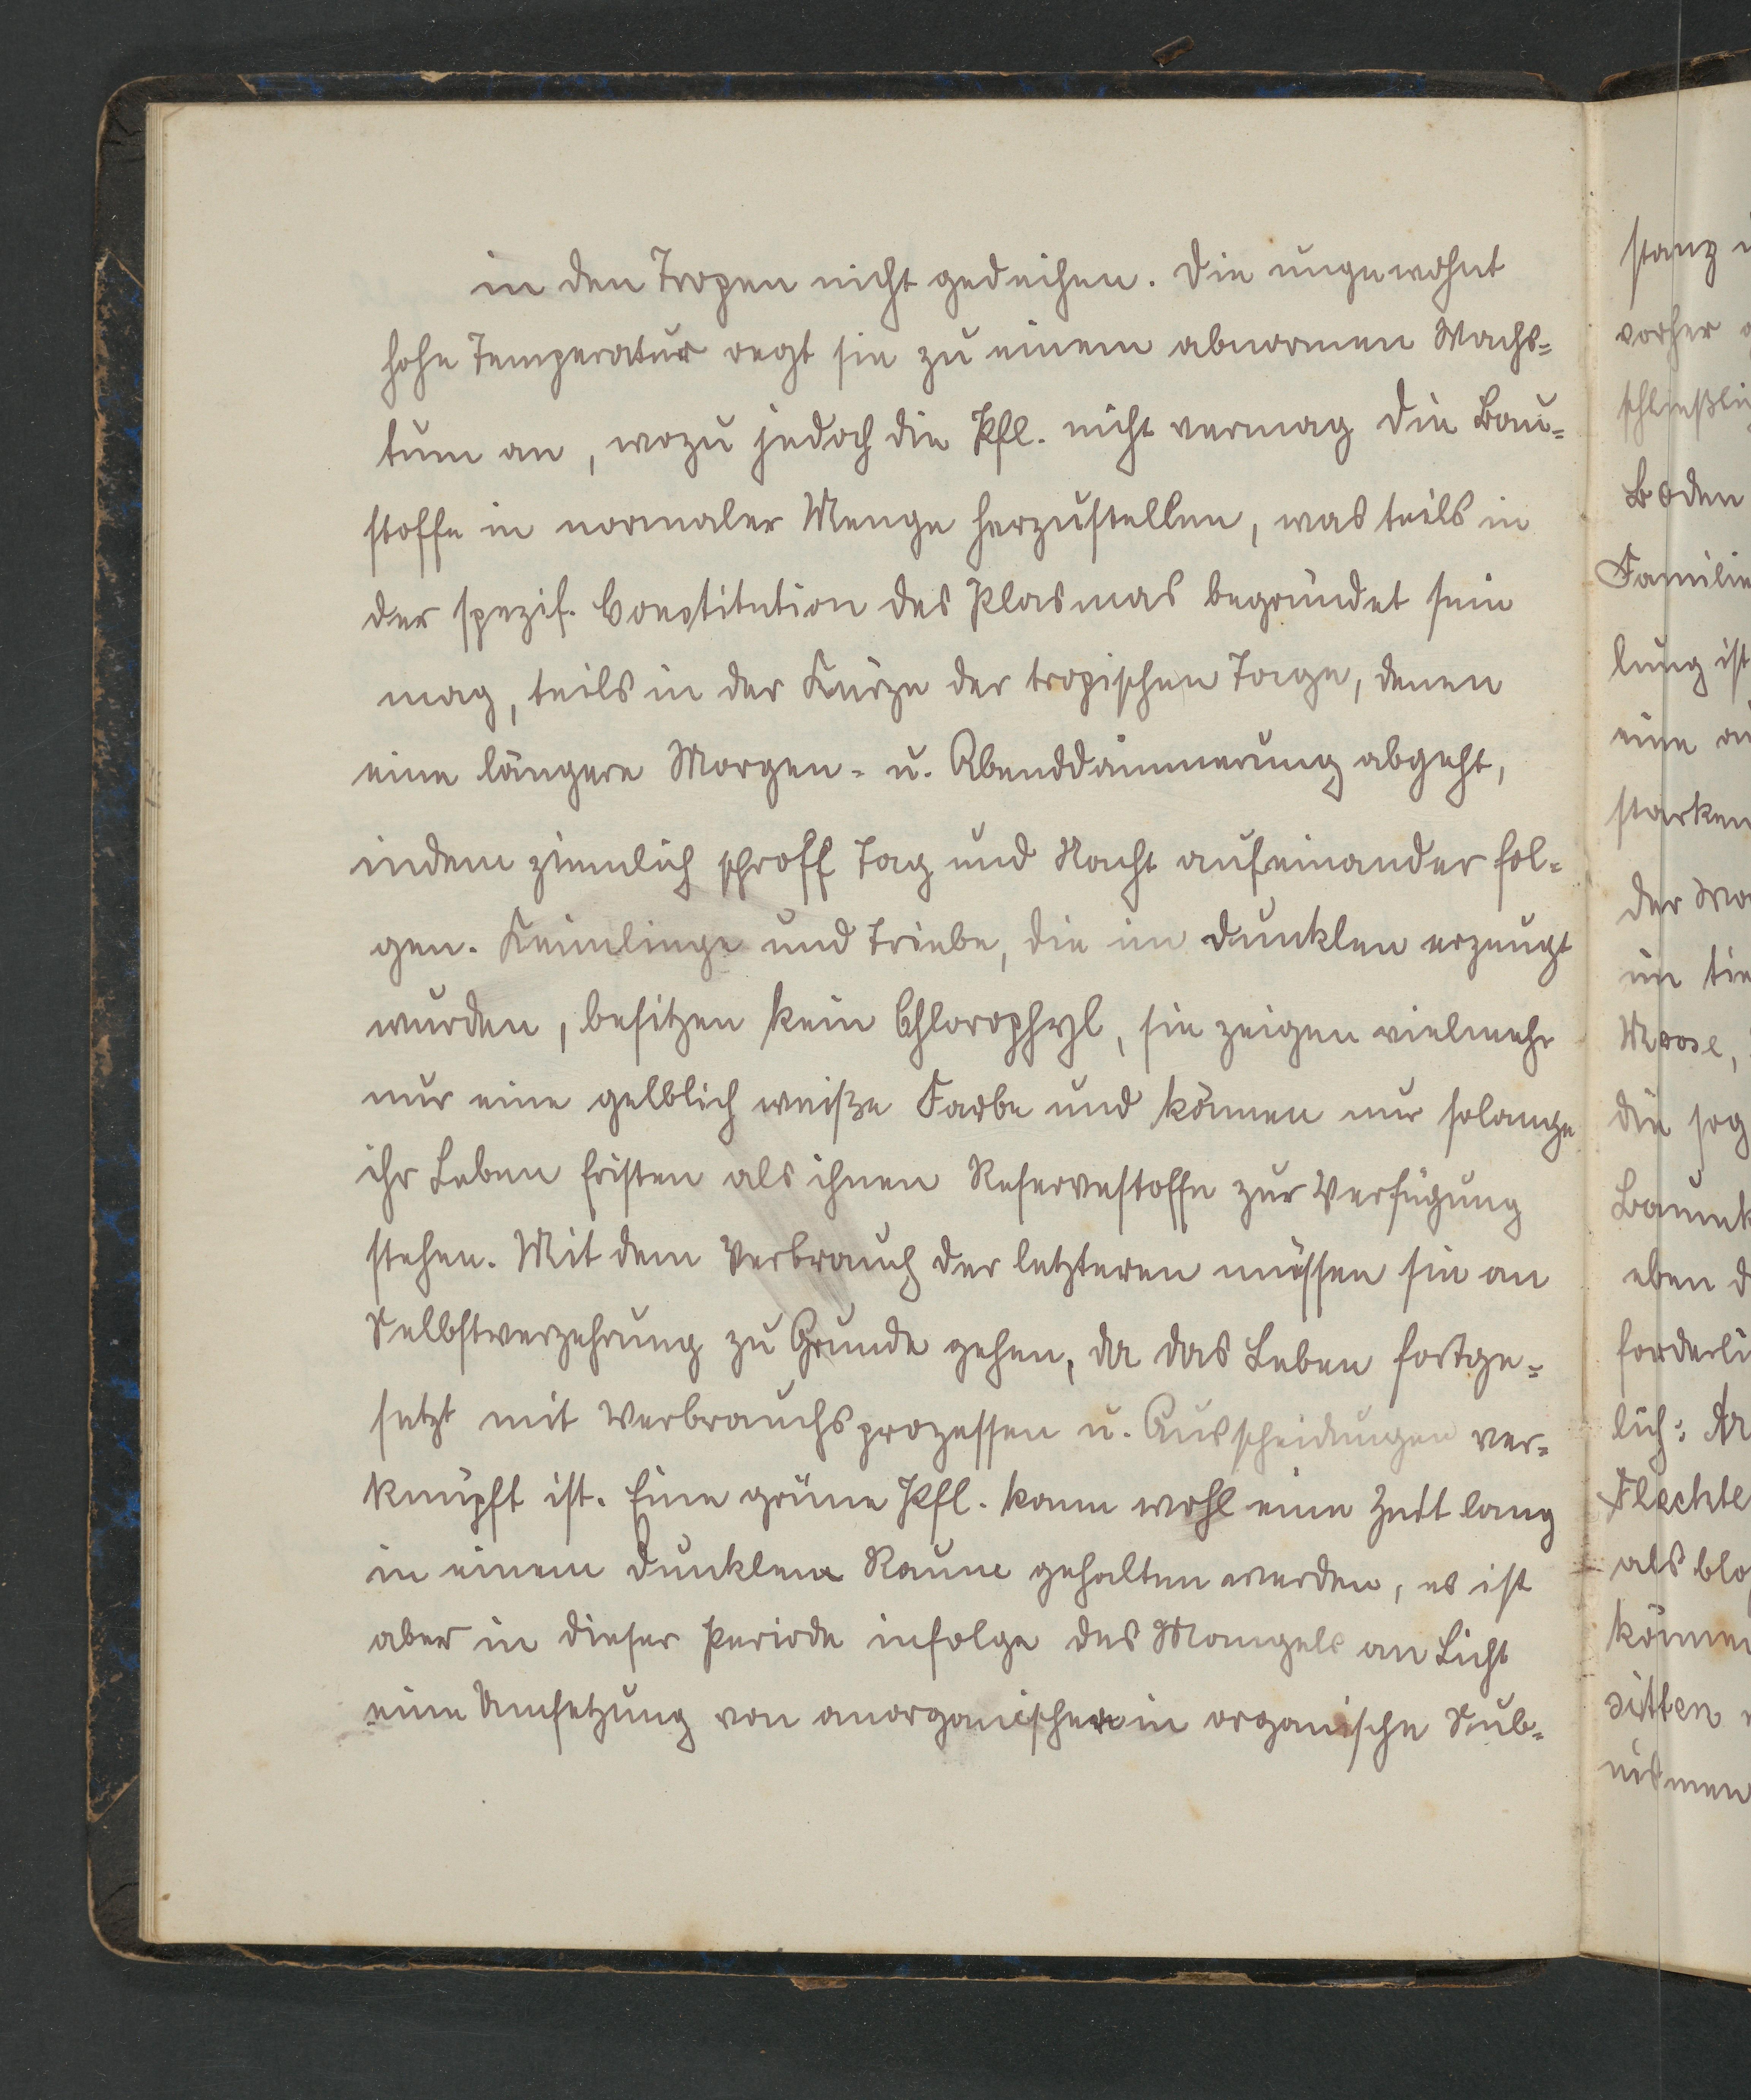 in den Tropen nicht gedeihen. Die ungewohnt
hohe Temperatur regt sie zu einem abnormen Wachs-
tum an, wozu jedoch die Pfl. nicht vermag die Bau-
stoffe in normaler Menge herzustellen, was teils in
der spezif. Constitution des Plasmas begründet sein
mag, teils in der Kürze der tropischen Tage, denen
eine längere Morgen- u. Abenddämmerung abgeht,
indem ziemlich schroff Tag und Nacht aufeinander fol-
gen. Keimlinge und Triebe, die im dunklen erzeugt
wurden, besitzen kein Chlorophyl, sie zeigen vielmehr
nur eine gelblich weiße Farbe und können nur solange
ihr Leben fristen als ihnen Reservestoffe zur Verfügung
stehen. Mit dem Verbrauch der letzteren müssen sie an
Selbstverzehrung zu Grunde gehen, da das Leben fortge-
setzt mit Verbrauchsprozessen u. Ausscheidungen ver-
knüpft ist. Eine grüne Pfl. kann wohl eine Zeit lang
in einem dunklen Raume gehalten werden, es ist
aber in dieser Periode infolge des Mangels an Licht
eine Umsetzung von anorganischer in organische Sub-
stanz
vorher
schließli
Boden
Familie
lung ist
eine
starken
der
im tie
Moose,
die sog
eben d
forderli
lich:
Flechte
als blo
können
sitten
nismen